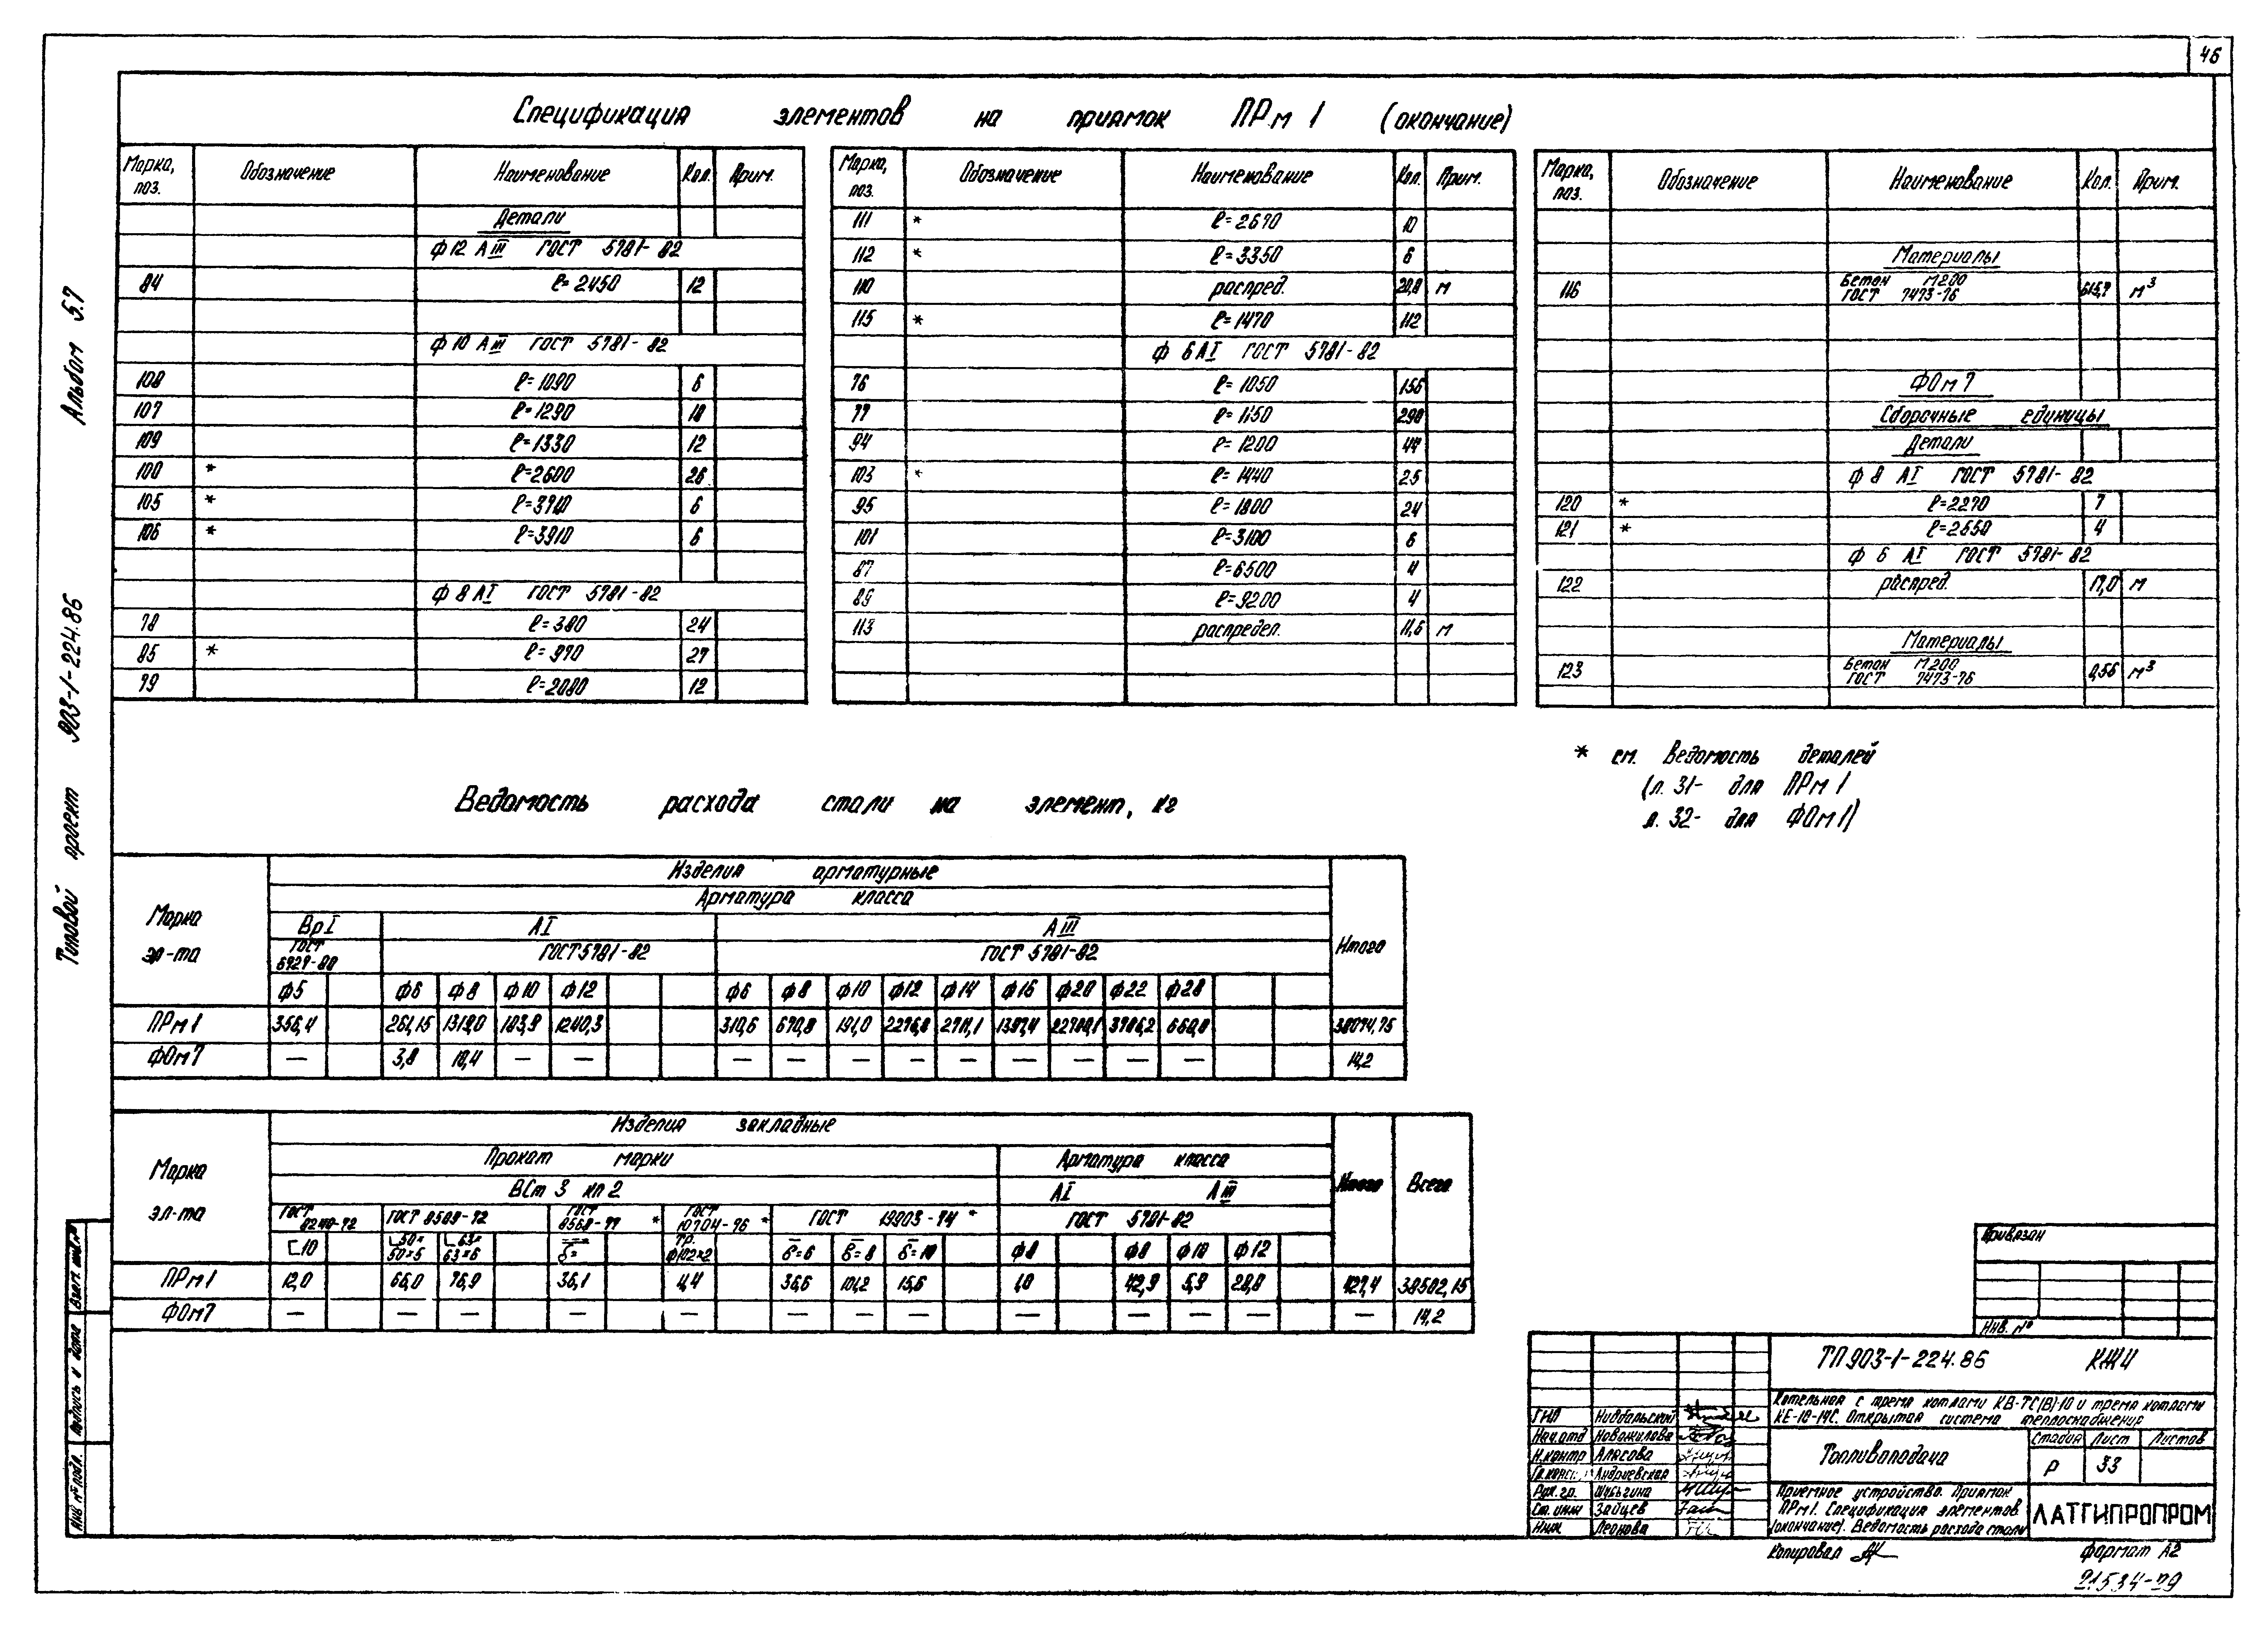 46
Спецификация элементов на приямок ПРм 1 (окончание)
Марка, поз. Обозначение Наименование Кол. Прим.
Детали
ф 12 АIII ГОСТ 5781-82
84 ℓ=2450 12
ф 10 АIII ГОСТ 5781-82
108 ℓ=1090 6
107 ℓ=1290 18
109 ℓ=1330 12
100 * ℓ=2600 26
105 * 6
106 * ℓ=3910 6
ф 8 АI ГОСТ 5781-82
78 ℓ=380 24
85 * ℓ=970 27
79 ℓ=2080 12
Марка, поз. Обозначение Наименование Кол. Прим.
111 * ℓ=2670 10
112 * ℓ=3350 6
110 распред. 20,8 м
115 * ℓ=1470 112
ф 6 АI ГОСТ 5781-82
76 ℓ=1050 156
77 ℓ=1150 290
94 ℓ=1200 44
103 * ℓ=1440 25
95 ℓ=1800 24
101 ℓ=3100 6
87 ℓ=6500 4
86 ℓ=9200 4
113 распредел. 11,6 м
Марка, поз. Обозначение Наименование Кол. Прим.
Материалы
116 Бетон М200 ГОСТ 7473-76 615,7 м³
ФОм 7
Сборочные единицы
Детали
ф 8 АI ГОСТ 5781-82
120 * ℓ=2270 7
121 * ℓ=2650 4
ф 6 АI ГОСТ 5781-82
122 распред. 17,0 м
Материалы
123 Бетон М200 ГОСТ 7473-76 0,56 м³
* см. Ведомость деталей
(л. 31- для ПРм 1
л. 32- для ФОм 1)
Ведомость расхода стали на элемент, кг
Марка эл-та
Изделия арматурные
Итого
Арматура класса
ВрI АI АIII
ГОСТ 6727-80 ГОСТ 5781-82 ГОСТ 5781-82
ф5 ф6 ф8 ф10 ф12 ф6 ф8 ф10 ф12 ф14 ф16 ф20 ф22 ф28
ПРм1 356,4 261,15 1319,0 183,9 1240,3 310,6 670,8 191,0 2276,8 2711,1 3786,2 660,8 38074,75
ФОм7 — 3,8 10,4 — — — — — — — — — — — 14,2
Марка эл-та
Изделия закладные
Итого Всего
Прокат марки Арматура класса
ВСт 3 кп 2 АI АIII
ГОСТ 8240-72 ГОСТ 8509-72 ГОСТ 8568-77 * ГОСТ 10704-76 * ГОСТ 19903-74 * ГОСТ 5781-82
[10 ∟50× 50×5 ∟63× 63×6 δ= Тр. ф102×2 δ=6 δ=8 δ=10 ф8 ф8 ф10 ф12
ПРм1 12,0 66,0 76,9 36,1 4,4 36,6 101,2 15,6 1,0 42,9 5,9 28,8 427,4 38502,15
ФОм7 — — — — — — — — — — — — — 14,2
Альбом 5.7
Типовой проект 903-1-224.86
Взам. инв.№
Подпись и дата
Инв.№ подл.
Привязан
Инв. №
ТП 903-1-224.86 КЖИ
Котельная с тремя котлами КВ-ТС(В)-10 и тремя котлами
КЕ-10-14С. Открытая система теплоснабжения
ГИП Нидбальский
Нач.отд Новожилова
Н.контр Алясова
Гл.конст. Андриевская
Рук. гр. Шубыгина
Ст. инж Зайцев
Инж Леонова
Топливоподача
Стадия Лист Листов
Р 33
Приемное устройство. Приямок
ПРм1. Спецификация элементов
(окончание). Ведомость расхода стали
ЛАТГИПРОПРОМ
Копировал
формат А2
21534-29